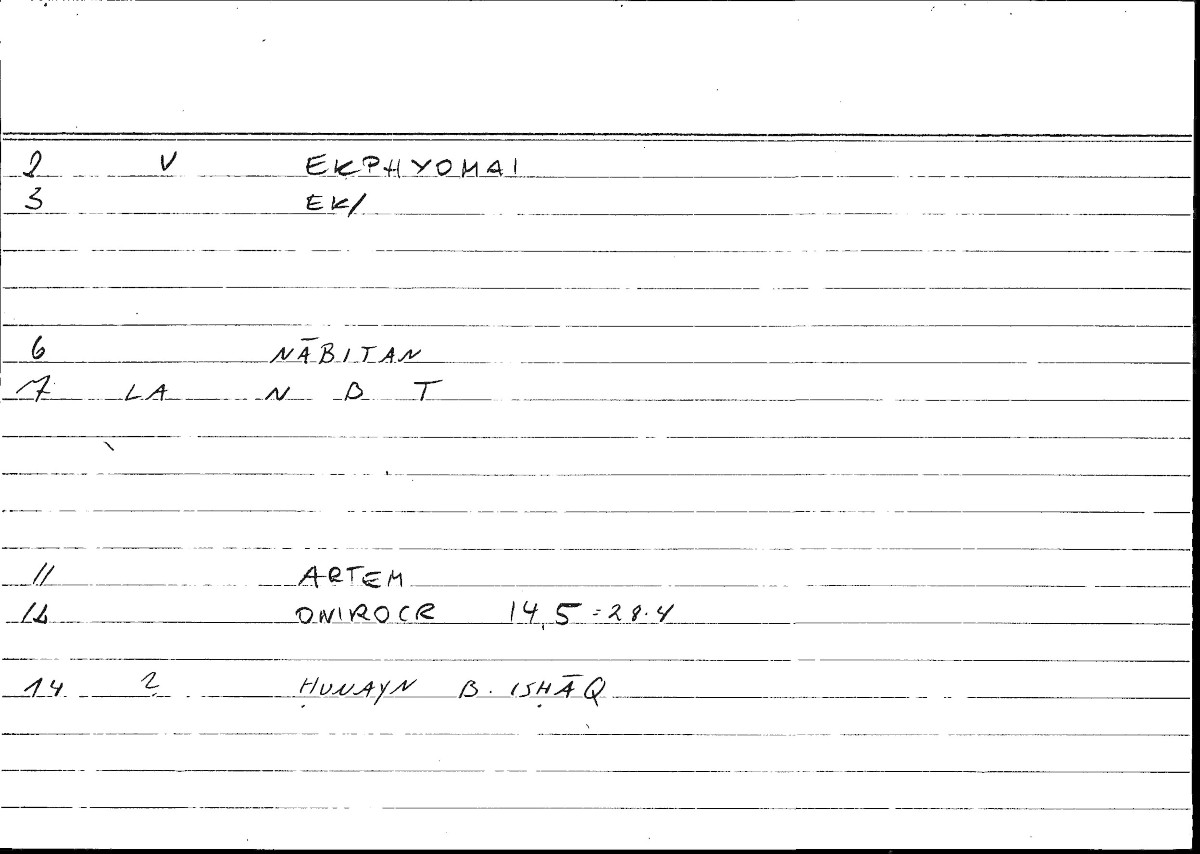 2 V EKPHYOMAI
3 EK/
6 NĀBITAN
7 LA N B T
11 ARTEM
12 ONIROCR 14,5 = 28.4
14 2 ḤUNAYN B. ISḤĀQ